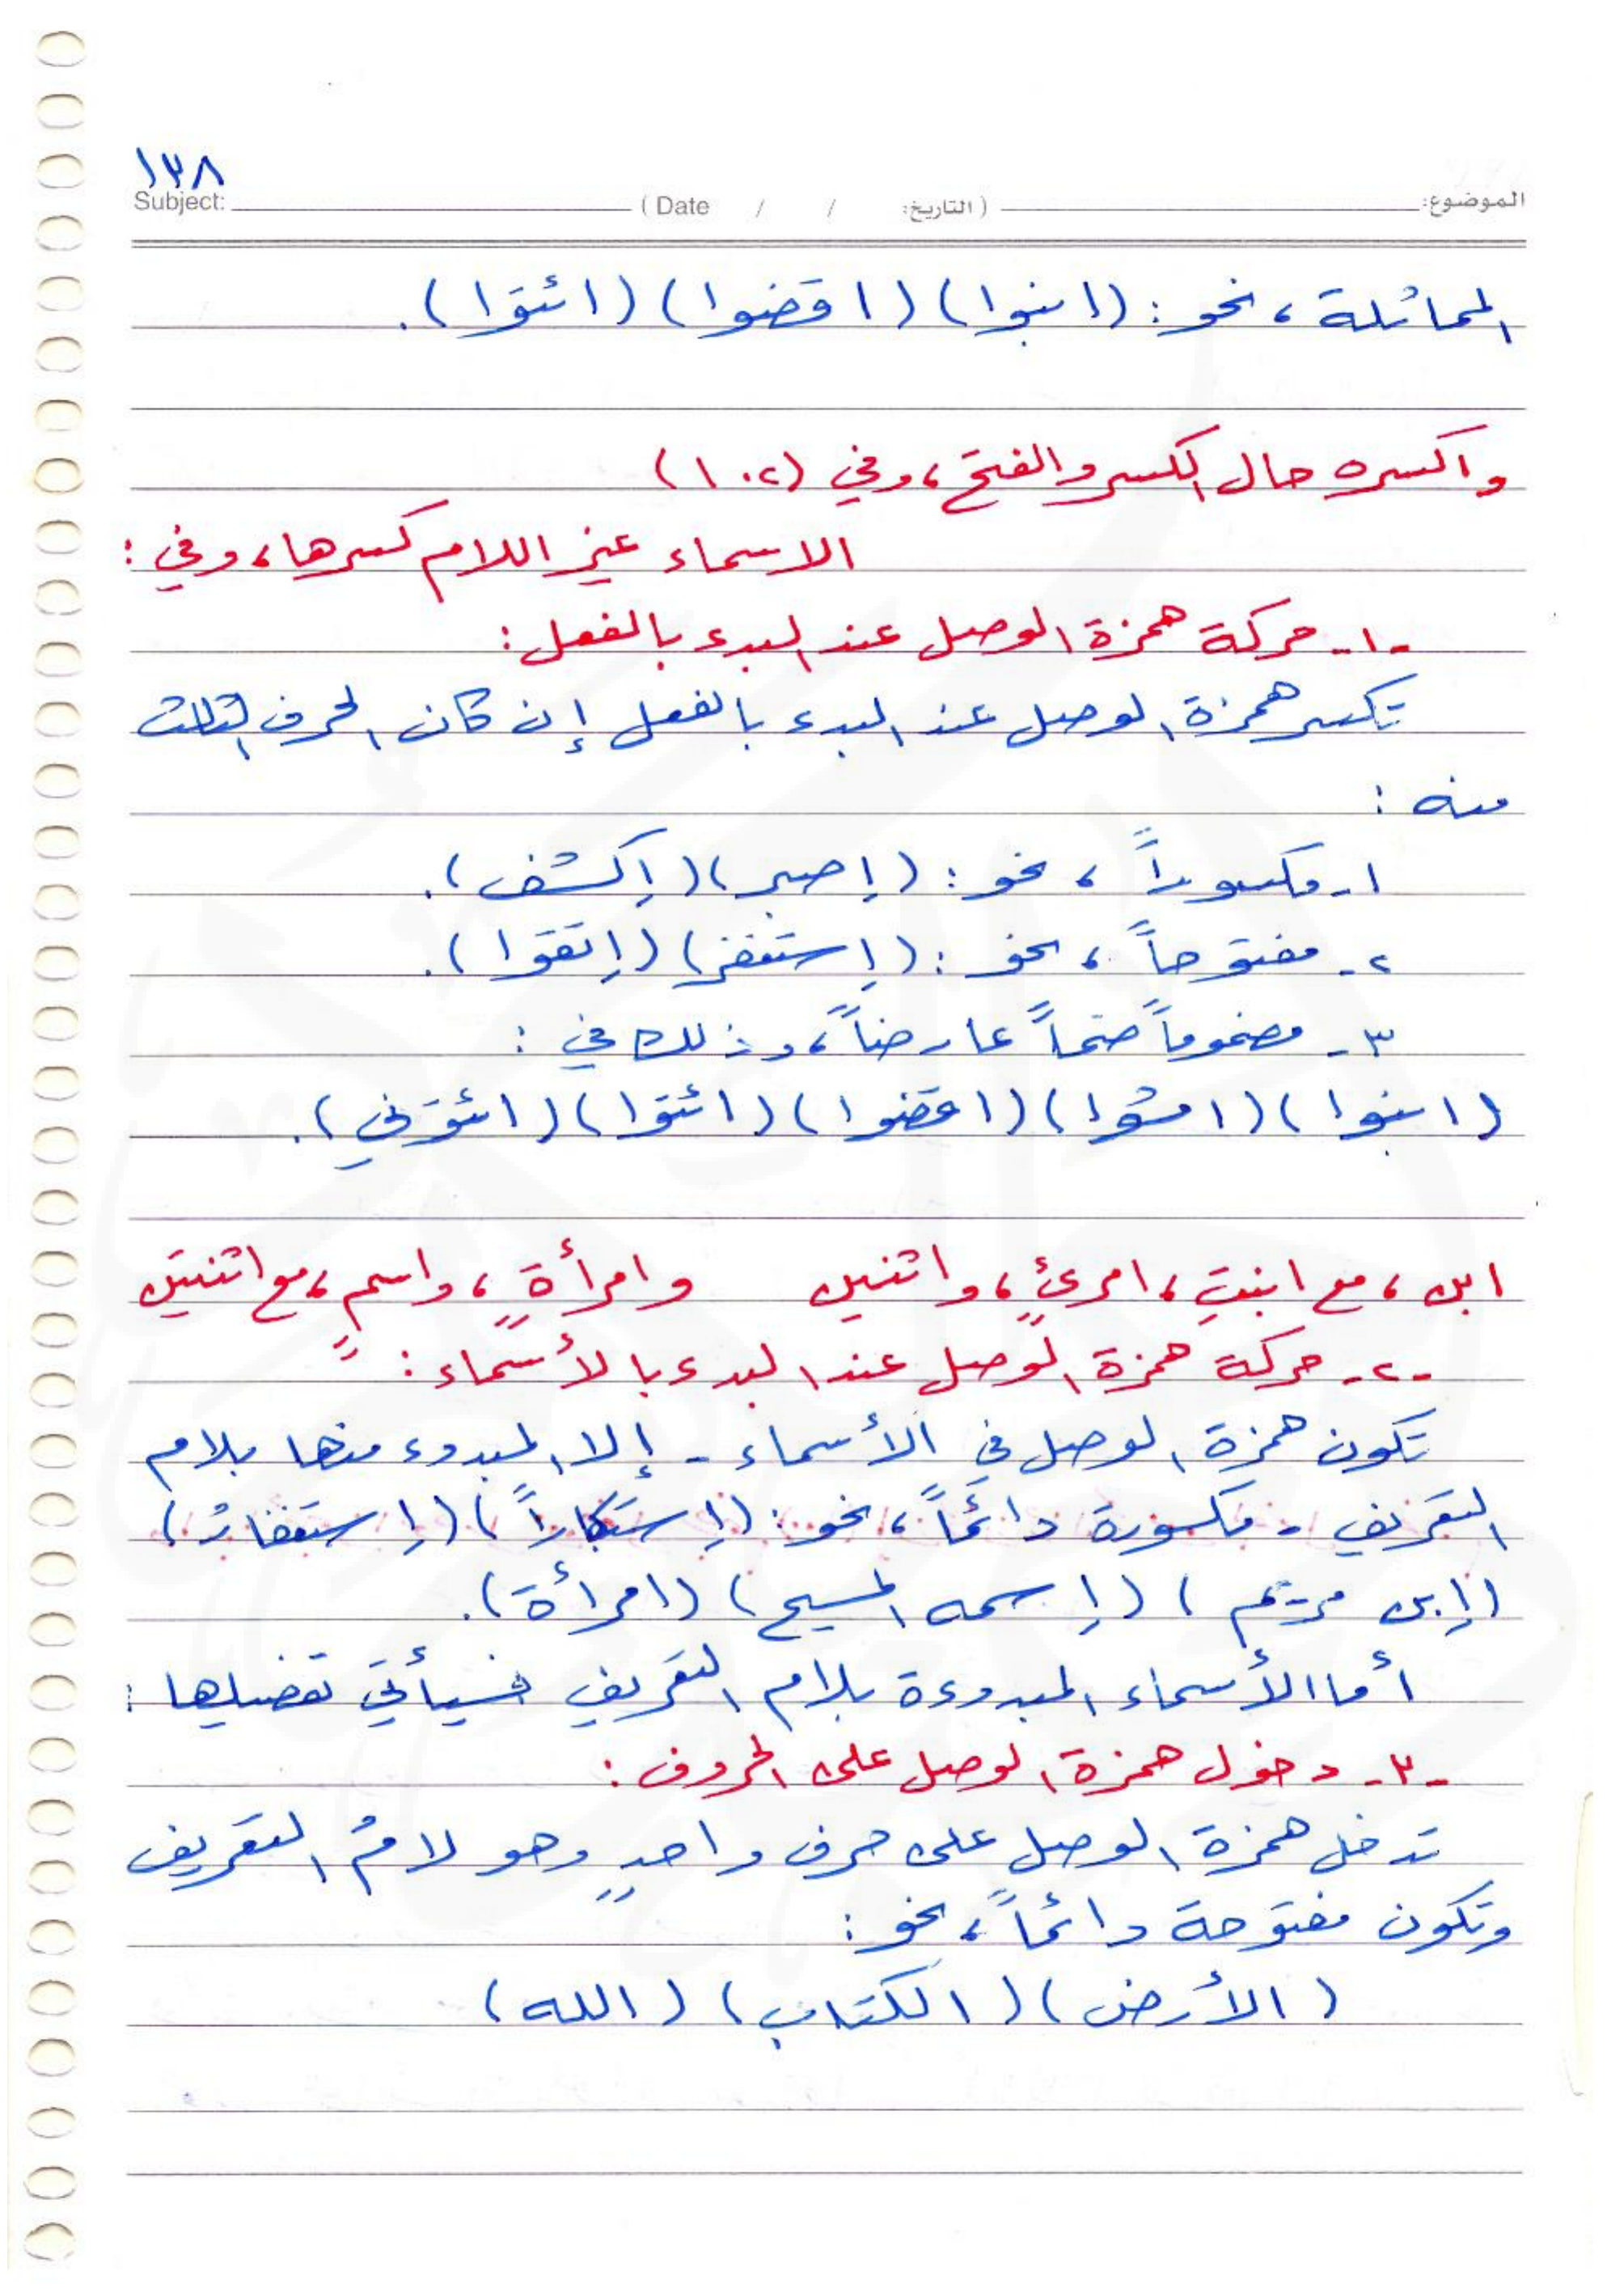 ١٣٨
Subject: ( Date / / التاريخ: ) الموضوع:
المماثلة ، نحو : (ابنوا) (اقضوا) (ائتوا).
واكسره حال الكسر والفتح ، وفي (١٠٢)
الاسماء غير اللام كسرها ، وفي :
-١- حركة همزة الوصل عند البدء بالفعل :
تكسر همزة الوصل عند البدء بالفعل إن كان الحرف الثالث
منه :
١- مكسوراً ، نحو : (إصبر) (إكشف).
٢- مفتوحاً ، نحو : (إستغفر) (إتقوا).
٣- مضموماً ضمّاً عارضاً ، وذلك في :
(ابنوا) (امشوا) (اقضوا) (ائتوا) (ائتوني).
ابن ، مع ابنتِ ، امرئٍ ، واثنين وامرأةٍ ، واسمٍ ، مع اثنتين
-٢- حركة همزة الوصل عند البدء بالأسماء :
تكون همزة الوصل في الأسماء - إلا المبدوء منها بلام
التعريف - مكسورة دائماً ، نحو : (إستكباراً) (إستغفارُ)
(إبن مريم) (إسمه المسيح) (امرأة).
أما الأسماء المبدوءة بلام التعريف فسيأتي تفصيلها :
-٣- دخول همزة الوصل على الحروف :
تدخل همزة الوصل على حرف واحدٍ وهو لامُ التعريف
وتكون مفتوحة دائماً ، نحو :
(الأرض) (الكتاب) (الله)